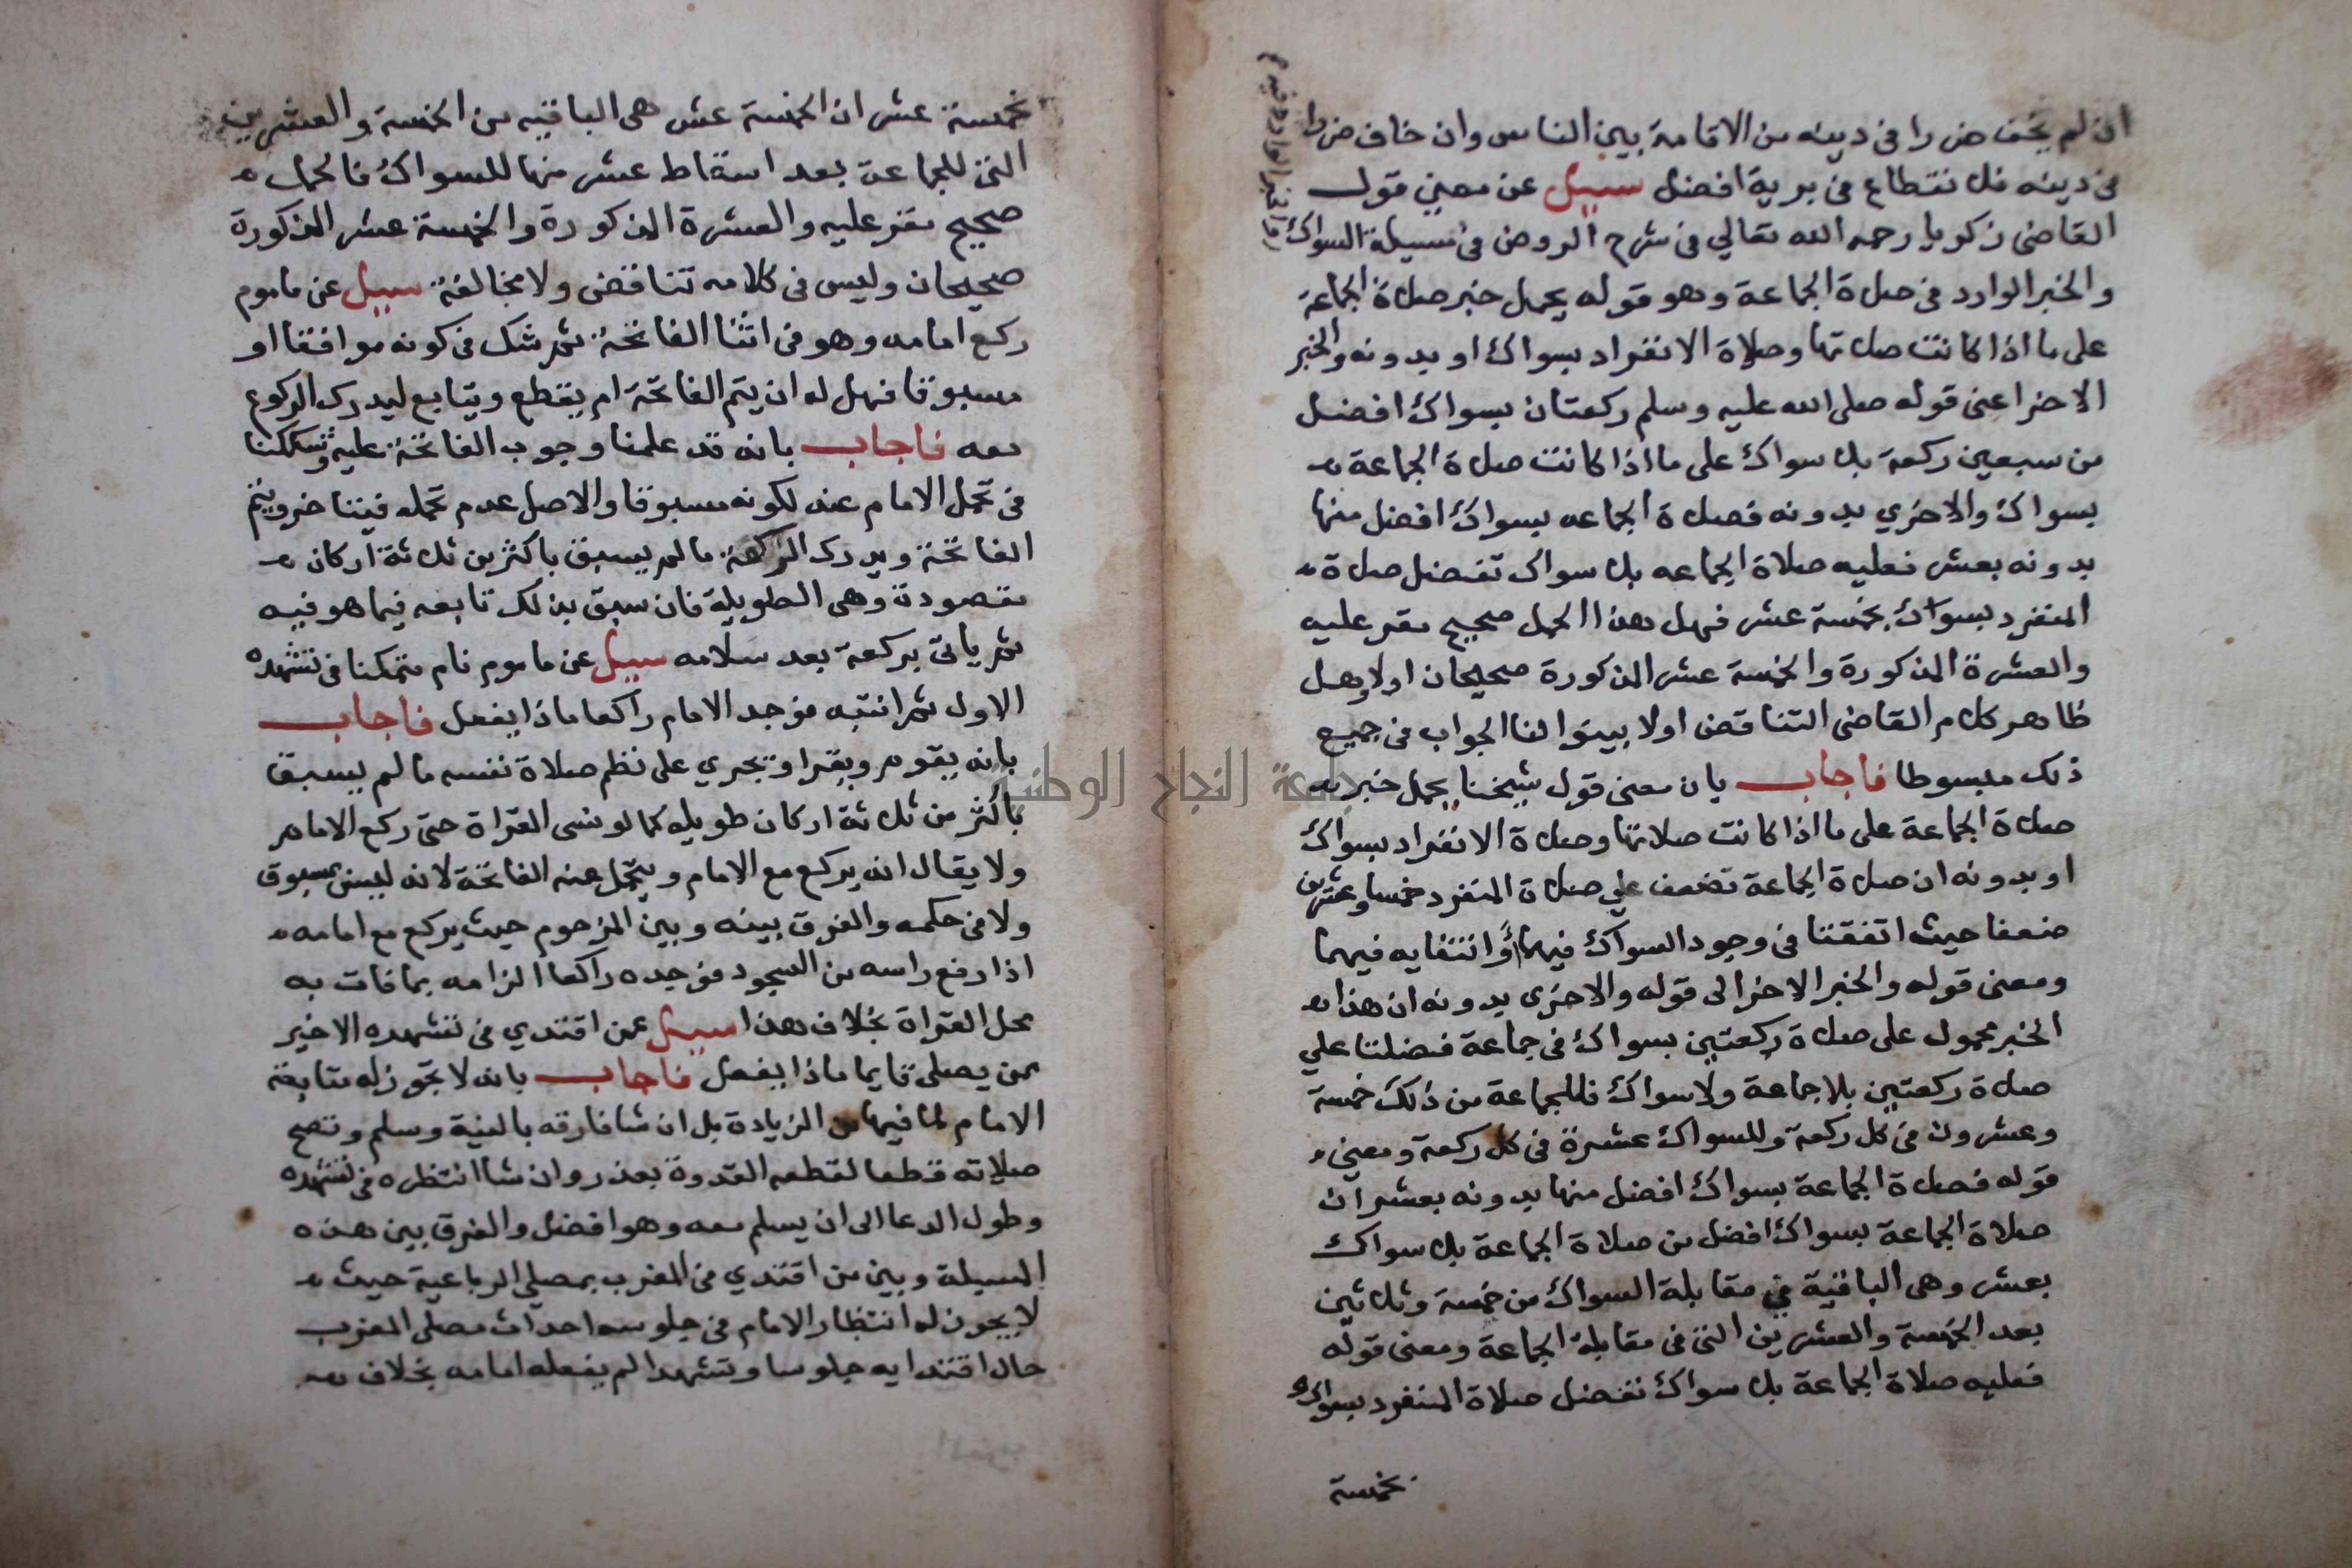 ان لم يخف ضررا في دينه من الاقامة بين الناس وان خاف ضررا
في دينه فالانقطاع في برية افضل سييل عن معني قول
القاضي زكريا رحمه الله تعالي في شرح الروض في مسيلة السواك
والخبر الوارد في صلاة الجماعة وهو قوله يحمل خبر صلاة الجماعة
علي ما اذا كانت صلاتها وصلاة الانفراد بسواك او بدونه والخبر
الاخر اعني قوله صلي الله عليه وسلم ركعتان بسواك افضل
من سبعين ركعة بلا سواك علي ما اذا كانت صلاة الجماعة
بسواك والاخري بدونه فصلاة الجماعه بسواك افضل منها
بدونه بعشر فعليه صلاة الجماعه بلا سواك تفضل صلاة
المنفرد بسواك بخمسة عشر فهل هذا الحمل صحيح مقر عليه
والعشرة المذكورة والخمسة عشر المذكورة صحيحان اولا وهل
ظاهر كلام القاضي التناقض اولا بينوا لنا الجواب في جميع
ذلك مبسوطا فاجاب بان معني قول شيخنا يحمل خبر
صلاة الجماعة علي ما اذا كانت صلاتها وصلاة الانفراد بسواك
او بدونه ان صلاة الجماعة تضعف علي صلاة المنفرد خمسا وعشرين
ضعفا حيث اتفقتا في وجود السواك فيهما او انتفايه فيهما
ومعني قوله والخبر الاخر الي قوله والاخري بدونه ان هذا
الخبر محمول علي صلاة ركعتين بسواك في جماعة فضلتا علي
صلاة ركعتين بلا جماعة ولا سواك فللجماعة من ذلك خمسة
وعشرون في كل ركعة وللسواك عشرة في كل ركعة ومعني
قوله فصلاة الجماعة بسواك افضل منها بدونه بعشر ان
صلاة الجماعة بسواك افضل من صلاة الجماعة بلا سواك
بعشر وهي الباقية في مقابلة السواك من خمسة وثلاثين
بعد الخمسة والعشرين التي في مقابلة الجماعة ومعني قوله
فعليه صلاة الجماعة بلا سواك تفضل صلاة المنفرد بسواك
بخمسة
بخمسة عشر ان الخمسة عشر هي الباقيه من الخمسة والعشرين
التي للجماعة بعد اسقاط عشر منها للسواك فالحمل
صحيح مقر عليه والعشرة المذكورة والخمسة عشر المذكورة
صحيحان وليس في كلامه تناقض ولا مخالفة سييل عن ماموم
ركع امامه وهو في اثنا الفاتحة ثم شك في كونه موافقا او
مسبوقا فهل له ان يتم الفاتحة ام يقطع ويتابع ليدرك الركوع
معه فاجاب بانه قد علمنا وجوب الفاتحة عليه وشككنا
في تحمل الامام عنه لكونه مسبوقا والاصل عدم تحمله فيتاخر ويتم
الفاتحة ويدرك الركعة ما لم يسبق باكثر من ثلاثة اركان
مقصودة وهي الطويلة فان سبق بذلك تابعه فيما هو فيه
ثم ياتي بركعة بعد سلامه سييل عن ماموم نام متمكنا في تشهده
الاول ثم انتبه فوجد الامام راكعا ماذا يفعل فاجاب
بانه يقوم ويقرا ويجري علي نظم صلاة نفسه ما لم يسبق
باكثر من ثلاثة اركان طويله كما لو نسي القراة حتي ركع الامام
ولا يقال انه يركع مع الامام ويتحمل عنه الفاتحة لانه ليس بمسبوق
ولا في حكمه والفرق بينه وبين المزحوم حيث يركع مع امامه
اذا رفع راسه من السجود فوجده راكعا الزامه بما فات به
محل القراة بخلاف هذا سييل عمن اقتدي في تشهده الاخير
بمن يصلي قايما ماذا يفعل فاجاب بانه لا تجوز له متابعة
الامام لما فيها من الزيادة بل ان شا فارقه بالنية وسلم وتصح
صلاته قطعا لقطعه القدوة بعذر وان شا انتظره في تشهده
وطول الدعا الي ان يسلم معه وهو افضل والفرق بين هذه
المسيلة وبين من اقتدي في المغرب بمصلي الرباعية حيث
لا يجوز له انتظار الامام في جلوسه احداث مصلي المغرب
حال اقتدايه جلوسا وتشهدا لم يفعله امامه بخلاف
جامعة النجاح الوطنية